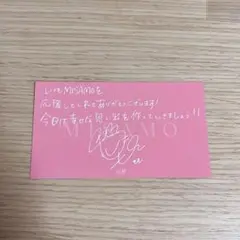 いつもMISAMOを
応援してくれてありがとうございます！
今日は幸せな思い出を作っていきましょう!!
MISAMO